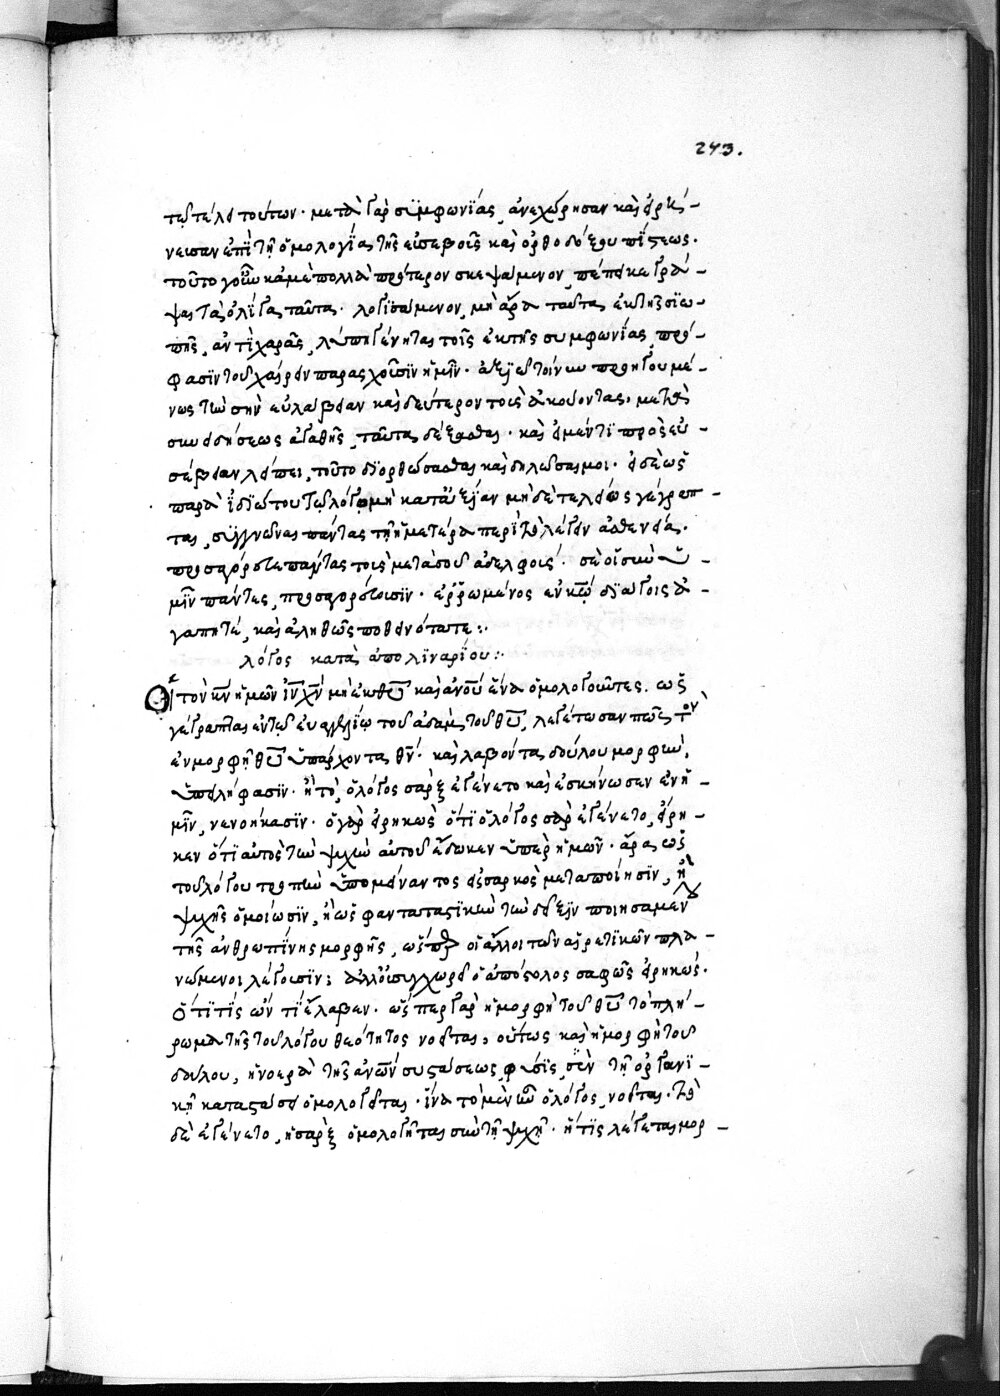 243.
τῷ τέλει τούτων· μετὰ γὰρ συμφωνίας, ἀνεχώρησαν καὶ εἰρή-
νευσαν ἐπὶ τῇ ὁμολογίᾳ τῆς εὐσεβοῦς καὶ ὀρθοδόξου πίστεως.
τοῦτο γοῦν κἀμὲ πολλὰ πρότερον σκεψάμενον, πέπεικε γρά-
ψαι τὰ ὀλίγα ταῦτα· λογισάμενον, μὴ ἄρα ταύταις ἐκ τῆς σιω-
πῆς, ἀντὶ χαρᾶς, λύπη γένηται τοῖς ἐκ τῆς συμφωνίας, πρό-
φασιν τοῦ χαίρειν παρασχοῦσιν ἡμῖν· ἀξιῶ τοίνυν προηγουμέ-
νως τὴν σὴν εὐλάβειαν καὶ δεύτερον τοὺς ἀκούοντας, μετὰ
συνειδήσεως ἀγαθῆς, ταῦτα δέξασθαι· καὶ εἰ μέν τι πρὸς εὐ-
σέβειαν λείπει, τοῦτο διορθώσασθαι καὶ δηλῶσαί μοι. εἰ δὲ ὡς
παρὰ ἰδιώτου τῷ λόγῳ μὴ κατ' ἀξίαν μηδὲ τελείως γέγραπ-
ται, συγγνῶναι πάντας τῇ ἡμετέρᾳ περὶ τὸ λέγειν ἀσθενείᾳ.
προσαγόρευε πάντας τοὺς μετὰ σοῦ ἀδελφούς· σὲ οἱ σὺν ἡ-
μῖν πάντες, προσαγορεύουσιν· ἐρρωμένος ἐν κῷ διάγοις ἀ-
γαπητέ, καὶ ἀληθῶς ποθεινότατε:·
λόγος κατὰ ἀπολιναρίου:·
Οἱ τὸν κν ἡμῶν ιν χν μὴ ἐκ θυ καὶ ανου ἕνα ὁμολογοῦντες. ὡς
γέγραπται ἐν τῷ εὐαγγελίῳ τοῦ ἀδὰμ τοῦ θυ, λεγέτωσαν πῶς τὸν
ἐν μορφῇ θυ ὑπάρχοντα θν· καὶ λαβόντα δούλου μορφὴν,
ὑπειλήφασιν· ἢ τὸ, ὁ λόγος σὰρξ ἐγένετο καὶ ἐσκήνωσεν ἐν ἡ-
μῖν, νενοήκασιν· ὁ γὰρ εἰρηκὼς ὅτι ὁ λόγος σὰρξ ἐγένετο, εἴρη-
κεν ὅτι αὐτὸς τὴν ψυχὴν αὐτοῦ ἔδωκεν ὑπὲρ ἡμῶν· ἆρα ὡς
τοῦ λόγου τροπὴν ὑπομείναντος εἰς σαρκὸς μεταποίησιν, ἢ
ψυχῆς ὁμοίωσιν, ἢ ὡς φαντασικὴν τὴν δεῖξιν ποιησαμένου
τῆς ἀνθρωπίνης μορφῆς, ὥσπερ οἱ ἄλλοι τῶν αἱρετικῶν πλα-
νώμενοι λέγουσιν; ἀλλ' οὐ συγχωρεῖ ὁ ἀπόστολος σαφῶς εἰρηκώς.
ὅτι τίς ὢν τί ἔλαβεν. ὥσπερ γὰρ ἡ μορφὴ τοῦ θυ τὸ πλή-
ρωμα τῆς τοῦ λόγου θεότητος νοεῖται, οὕτως καὶ ἡ μορφὴ τοῦ
δούλου, ἡ νοερὰ τῆς ανων συστάσεως, φύσις, σὺν τῇ ὀργανι-
κῇ καταστάσει ὁμολογεῖται· ἵνα τὸ μὲν ἦν ὁ λόγος, νοεῖται. τὸ
δὲ ἐγένετο, ἡ σὰρξ ὁμολογῆται σὺν τῇ ψυχῇ· ἥτις λέγεται μορ-